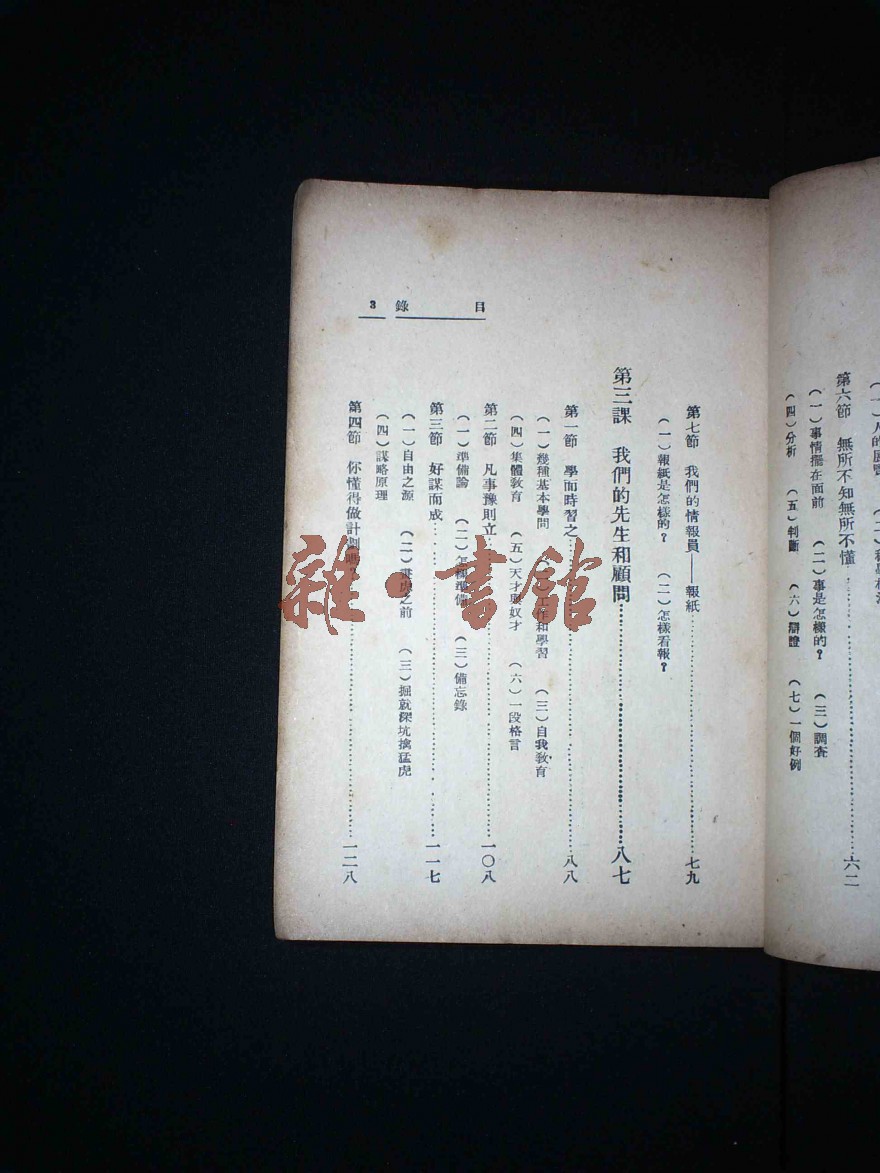 第六節 無所不知無所不懂 六二
(一)事情擺在面前 (二)事是怎樣的? (三)調查
(四)分析 (五)判斷 (六)辯證 (七)一個好例
目錄 3
第七節 我們的情報員——報紙 七九
(一)報紙是怎樣的? (二)怎樣看報?
第三課 我們的先生和顧問 八七
第一節 學而時習之 八八
(一)幾種基本學問 工作和學習 (三)自我教育
(四)集體教育 (五)天才與奴才 (六)一段格言
第二節 凡事豫則立 一〇八
(一)準備論 (二)怎樣準備 (三)備忘錄
第三節 好謀而成 一一七
(一)自由之源 (二)畫虎之前 (三)掘就深坑擒猛虎
(四)謀略原理
第四節 你懂得做計劃嗎? 一二八
雜·書館